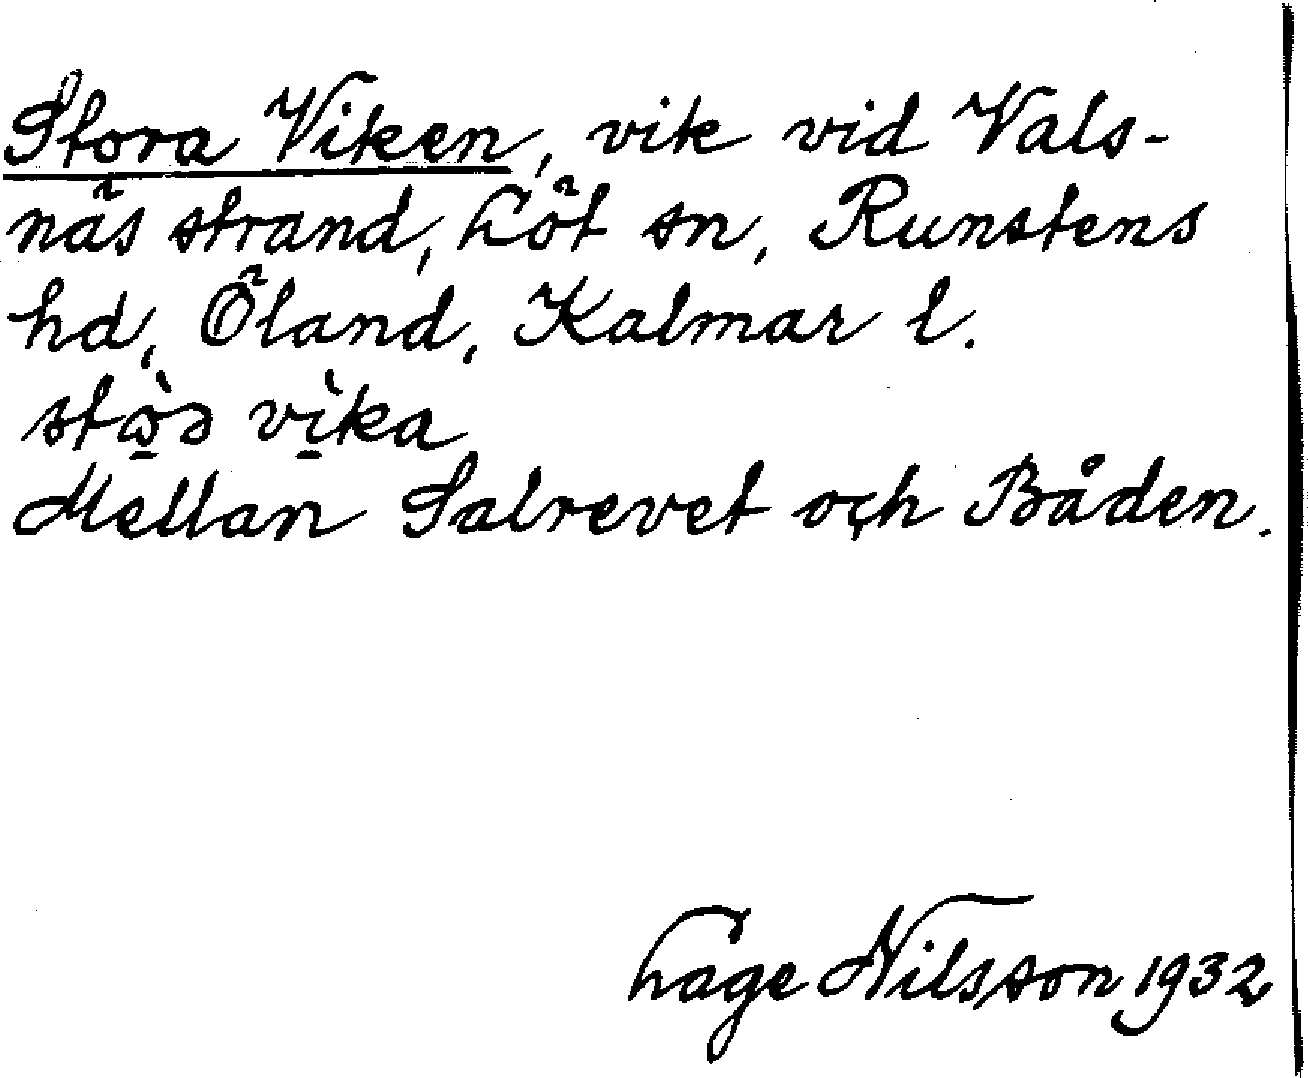 Stora Viken, vik vid Vals-
näs strand, Löt sn, Runstens
hd, Öland, Kalmar l.
vika
Mellan Salrevet och Båden.
Lage Nilsson 1932